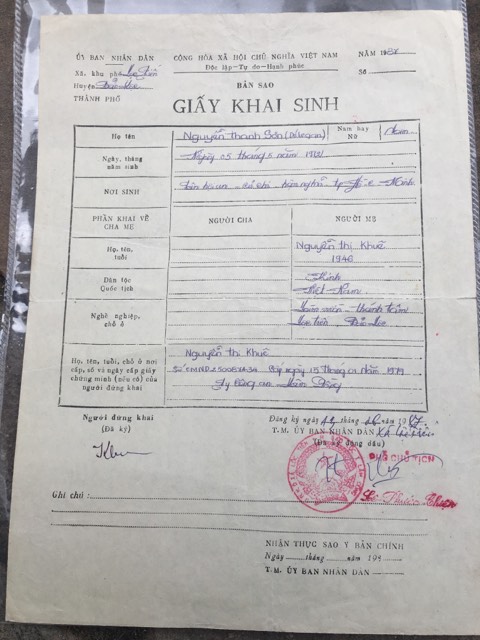 ỦY BAN NHÂN DÂN
Xã, khu phố Lộc Tiến
Huyện Bảo Lộc
THÀNH PHỐ
CỘNG HÒA XÃ HỘI CHỦ NGHĨA VIỆT NAM
Độc lập - Tự do - Hạnh phúc
NĂM 198
Số
BẢN SAO
GIẤY KHAI SINH
Họ tên
Nguyễn Thanh Sơn
Nam hay Nữ
Nam
Ngày, tháng năm sinh
Ngày 05 tháng 5 năm
NƠI SINH
PHẦN KHAI VỀ CHA MẸ
NGƯỜI CHA
NGƯỜI MẸ
Họ, tên, tuổi
Nguyễn Thị Khuê
1946
Dân tộc
Quốc tịch
Kinh
Việt Nam
Nghề nghiệp, chỗ ở
Lộc tiến Bảo Lộc
Họ, tên, tuổi, chỗ ở nơi
cấp, số và ngày cấp giấy
chứng minh (nếu có) của
người đứng khai
Nguyễn Thị Khuê
Số CMND 250081434 Cấp ngày 15 tháng 01 năm 1979
Ty Công an Lâm Đồng
Người đứng khai
(Đã ký)
Đăng ký ngày tháng 19
T.M. ỦY BAN NHÂN DÂN Xã Lộc Tiến
(Đã ký đóng dấu)
PHÓ CHỦ TỊCH
Ghi chú :
NHẬN THỰC SAO Y BẢN CHÍNH
Ngày tháng năm 19
T.M. ỦY BAN NHÂN DÂN